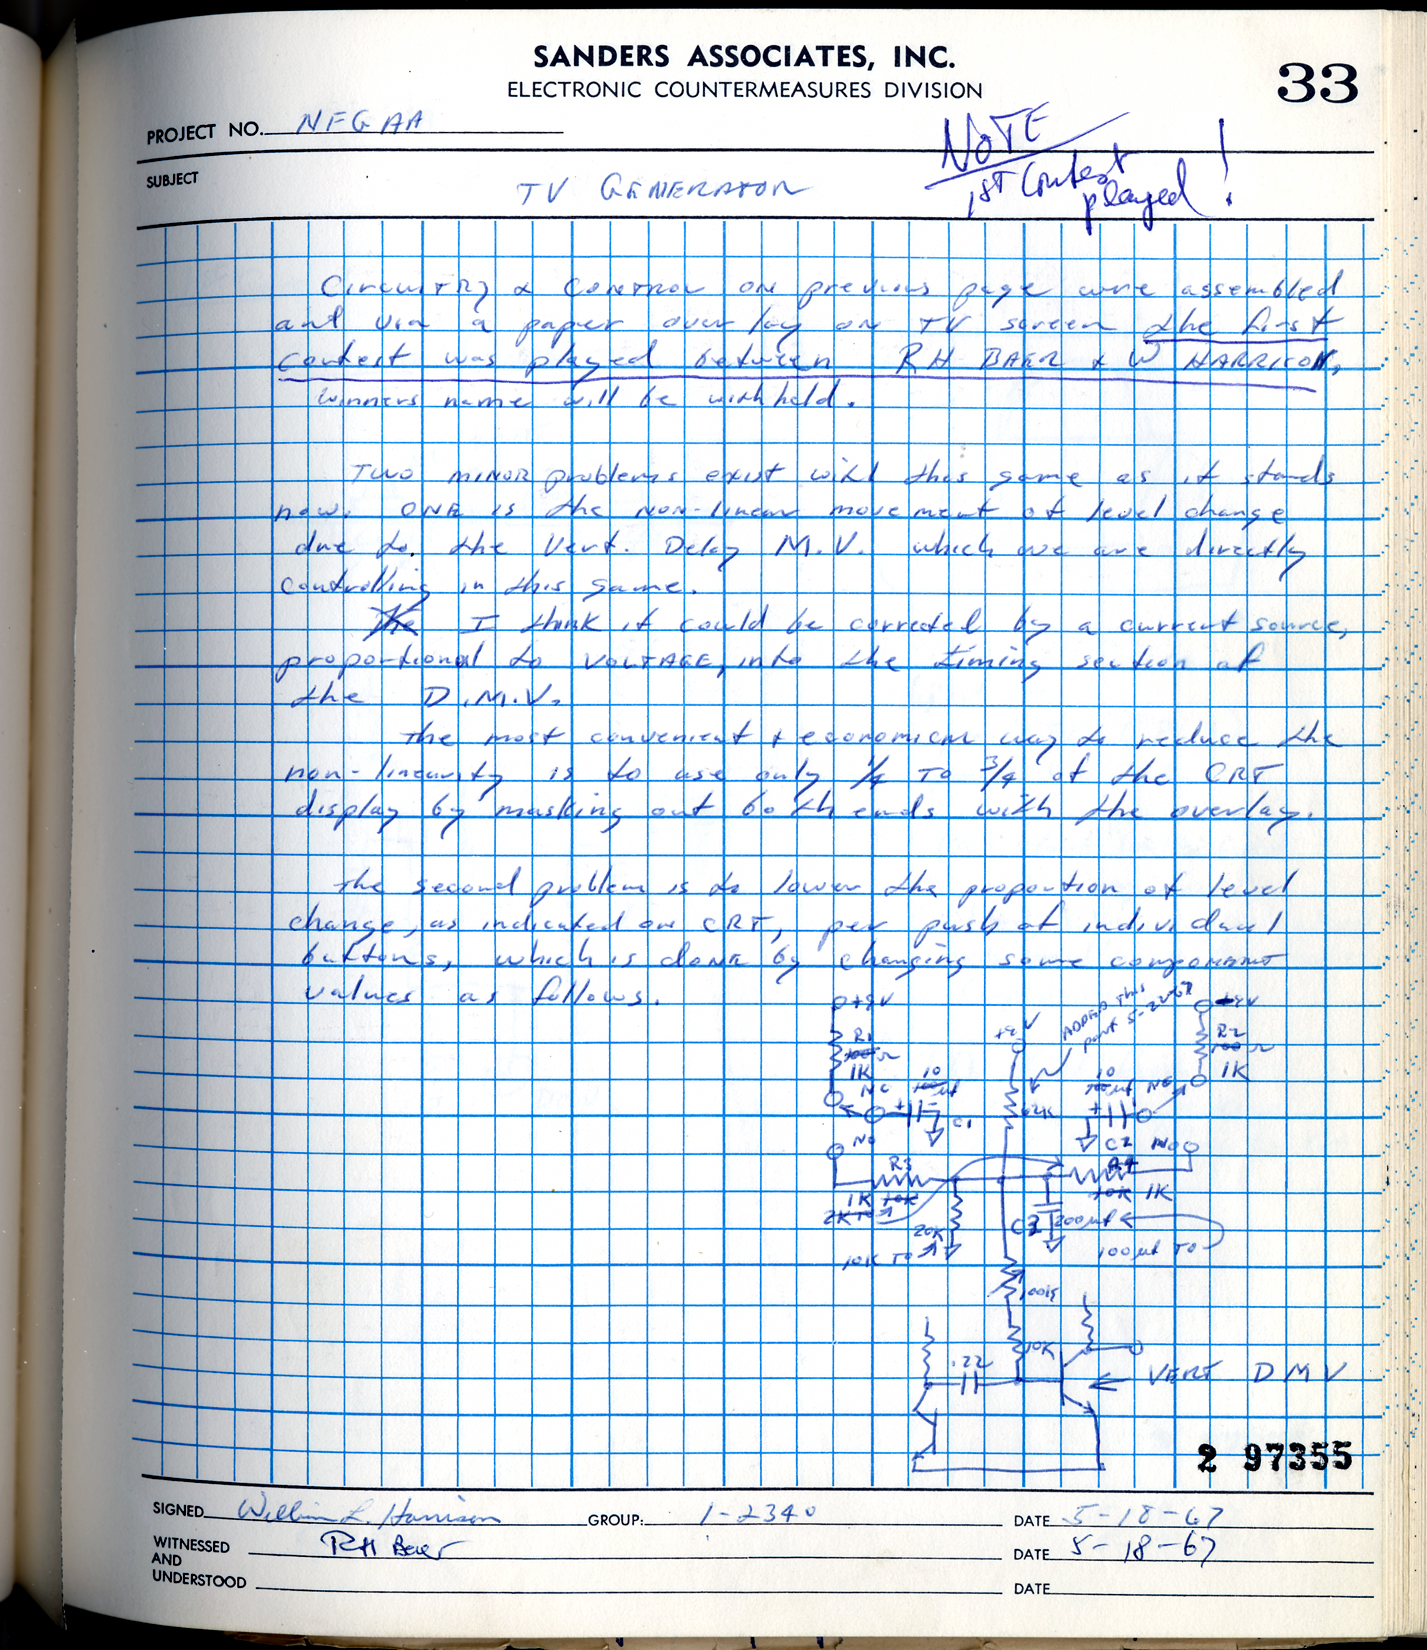 SANDERS ASSOCIATES, INC.
ELECTRONIC COUNTERMEASURES DIVISION
33
PROJECT NO. NFGAA
NOTE
1ST Contest
played!
SUBJECT
TV GENERATOR
Circuitry & control on previous page were assembled
and via a paper overlay on TV screen the first
contest was played between RH BAER & W HARRISON,
winners name will be withheld.
Two minor problems exist with this game as it stands
now. ONE is the non-linear movement of level change
due to the Vert. Delay M.V. which we are directly
controlling in this game.
The I think it could be corrected by a current source,
proportional to VOLTAGE, into the timing section of
the D.M.V.
The most convenient & economical way to reduce the
non-linearity is to use only 1/4 TO 3/4 of the CRT
display by masking out both ends with the overlay.
The second problem is to lower the proportion of level
change, as indicated on CRT, per push of individual
buttons, which is done by changing some component
values as follows.
+9V
+9V
ADDED this
part 5-22-67
+9V
R1
100Ω
1K
NC
10
100µf
C1
62K
10
100µf
NC
R2
100Ω
1K
NO
C2
NO
R3
R4
1K 10K
2K TO
10K 1K
20K
10K TO
C3
200µf
100µf TO
100K
10K
.22
VERT DMV
2 97355
SIGNED William L. Harrison GROUP: 1-2340 DATE 5-18-67
WITNESSED
AND
UNDERSTOOD
RH Baer
DATE 5-18-67
DATE